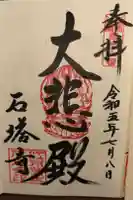 奉拝
令和五年七月八日
大悲殿
石塔寺